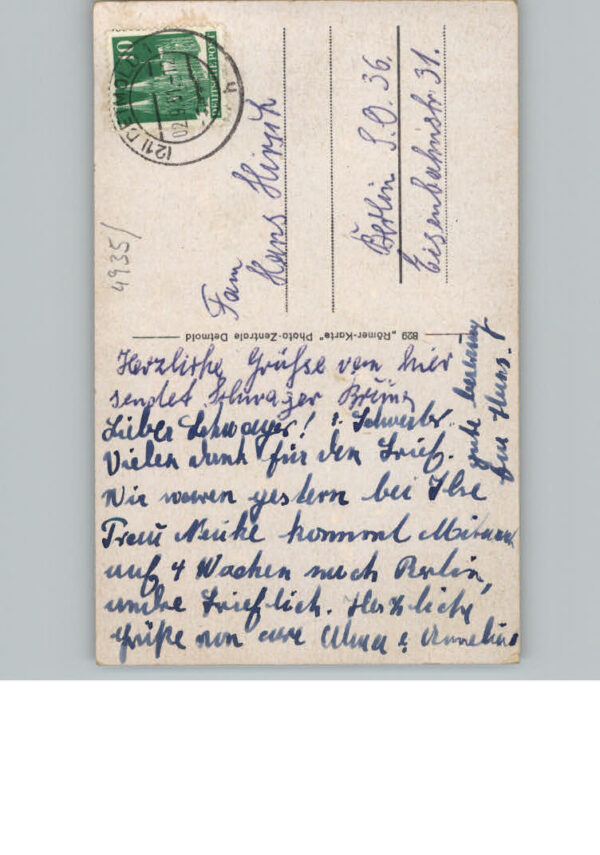 10
DEUTSCHE POST
(21) DETMOLD
4935/
Fam
Hans Hirsch
Berlin S.O. 36.
Eisenbahnstr 31.
829 „Römer-Karte" Photo-Zentrale Detmold
Herzliche Grüße von hier
sendet Schwager Bruno
Lieber Schwager! u. Schwester.
Vielen dank für den Brief.
Wir waren gestern bei Ilse
Frau Neuke kommt
auf 4 Wochen nach Berlin,
brieflich. Herzliche
Grüße von eure Alma &
gute besserung
für Hans.